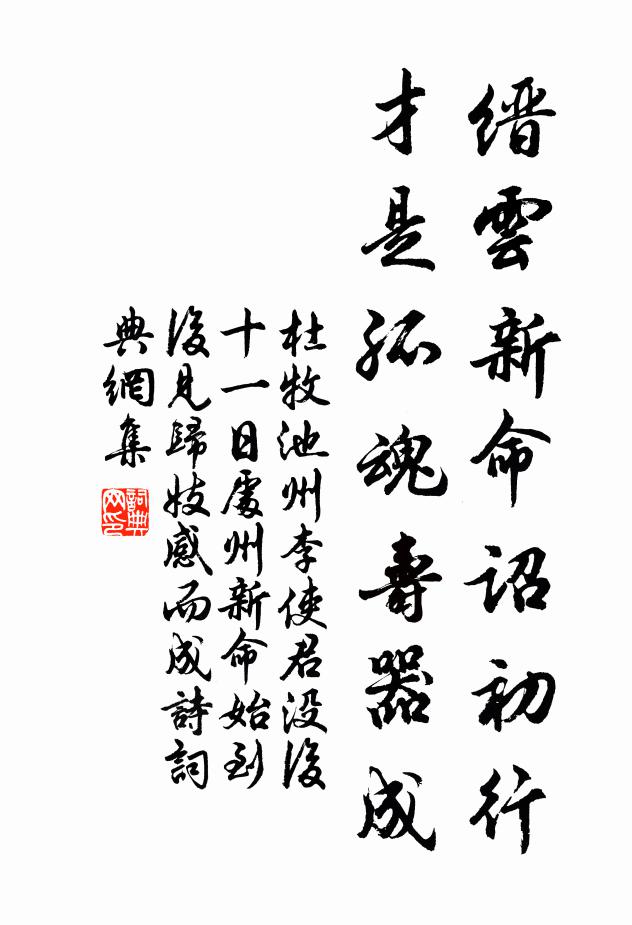 縉雲新命詔初行
才是孤魂壽器成
杜牧池州李使君没後
十一日處州新命始到
後見歸妓感而成詩詞
典網集
詞典网印